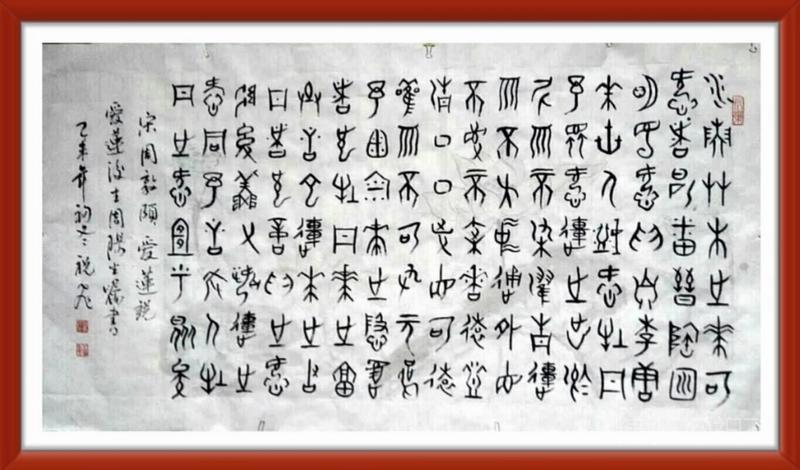 水陸艸木之華可
愛者甚蕃晉陶淵
明獨愛菊自李唐
來世人甚愛牡丹
予獨愛蓮之出於
泥而不染濯清蓮
而不夭中通外直
不蔓不枝香遠益
清亭亭淨植可遠
觀而不可褻玩焉
予謂菊華之隱逸
者也牡丹華之富
貴者也蓮華之君
子者也噫菊之愛
陶後鮮有聞蓮之
愛同予者何人牡
丹之愛宜乎眾矣
宋周敦頤愛蓮說
愛蓮後生周書
乙未年初冬